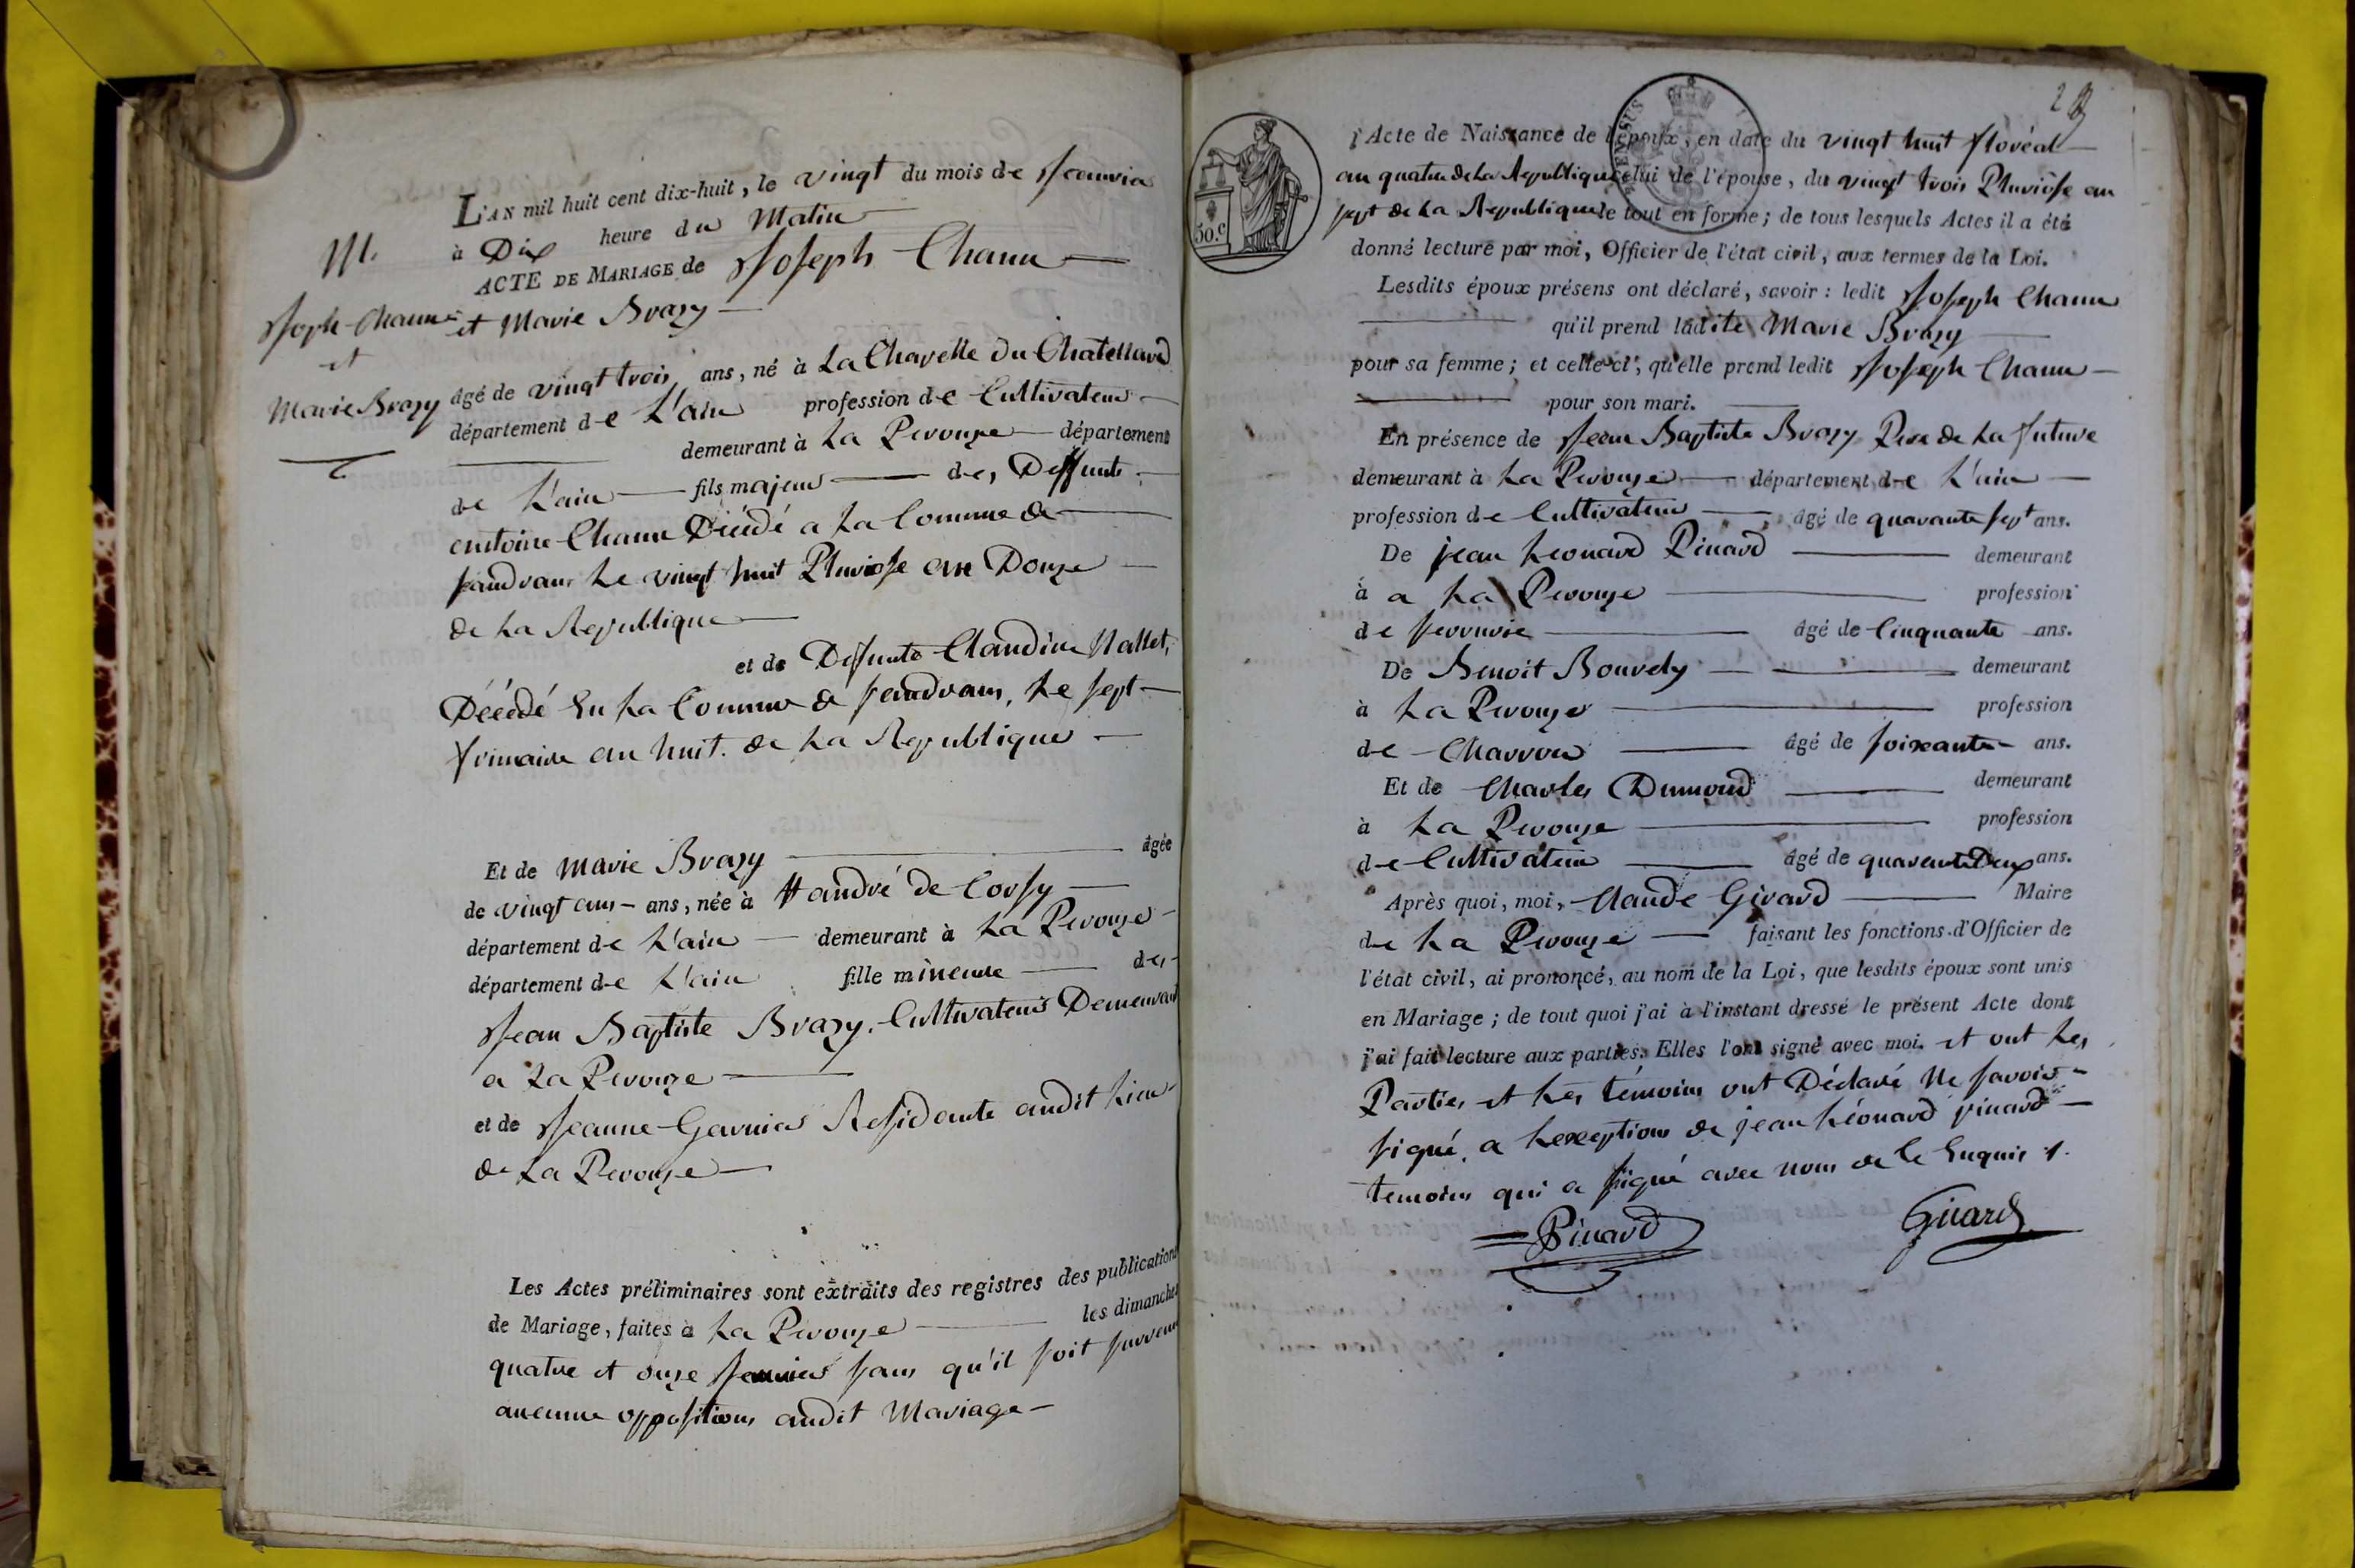 L'AN mil huit cent dix-huit, le vingt du mois de Janvier
à Dix heure du Matin
ACTE DE MARIAGE de Joseph Chanu
et Marie Brazy
M.
Joseph Chanu
et
Marie Brazy
âgé de vingt trois ans, né à La Chapelle du Chatellard
département de L'ain profession de Cultivateur
demeurant à La Perouze département
de L'ain fils majeur des Deffunts
antoine Chanu Décédé a La Commune de
Sandrans Le vingt huit Pluviose an Douze
de La Republique
et de Defunte Claudine Nallet,
Décédé En La Commune de Sandrans, Le sept
frimaire an huit. de La Republique
Et de Marie Brazy âgée
de vingt ans ans, née à St andré de Corsy
département de L'ain demeurant à La Perouze
département de L'ain fille mineure des
Jean Baptiste Brazy. Cultivateurs Demeurant
a La Perouze
et de Jeanne Garnier Residante audit Lieu
de La Perouze
Les Actes préliminaires sont extraits des registres des publications
de Mariage, faites à La Perouze les dimanches
quatre et onze Janvier sans qu'il soit survenu
aucunne oppositions audit Mariage
l'Acte de Naissance de l'époux, en date du vingt huit floréal
an quatre de La Republique celui de l'épouse, du vingt trois Pluviôse an
sept de La Republique le tout en forme; de tous lesquels Actes il a été
donné lecture par moi, Officier de l'état civil, aux termes de la Loi.
50.c
Lesdits époux présens ont déclaré, savoir : ledit Joseph Chanu
qu'il prend ladite Marie Brazy
pour sa femme; et celle-ci, qu'elle prend ledit Joseph Chanu
pour son mari.
En présence de Jean Baptiste Brazy Pere de La future
demeurant à La Perouze département de L'ain
profession de Cultivateur âgé de quarante sept ans.
De jean Leonard Pinard demeurant
à a La Perouze profession
de âgé de Cinquante ans.
De Benoit Bouvely demeurant
à La Perouze profession
de Charron âgé de soixante ans.
Et de Charles Dumond demeurant
à La Perouze profession
de Cultivateur âgé de quarante Deux ans.
Après quoi, moi, Claude Girard Maire
de La Perouze faisant les fonctions d'Officier de
l'état civil, ai prononcé, au nom de la Loi, que lesdits époux sont unis
en Mariage; de tout quoi j'ai à l'instant dressé le présent Acte dont
j'ai fait lecture aux parties. Elles l'ont signé avec moi. et ont Les
Parties et Les témoins ont Déclaré Ne savoir
signé. a Lexception de jean Léonard pinard
temoins qui a signé avec nous de Ce Enquis
Pinard Girard